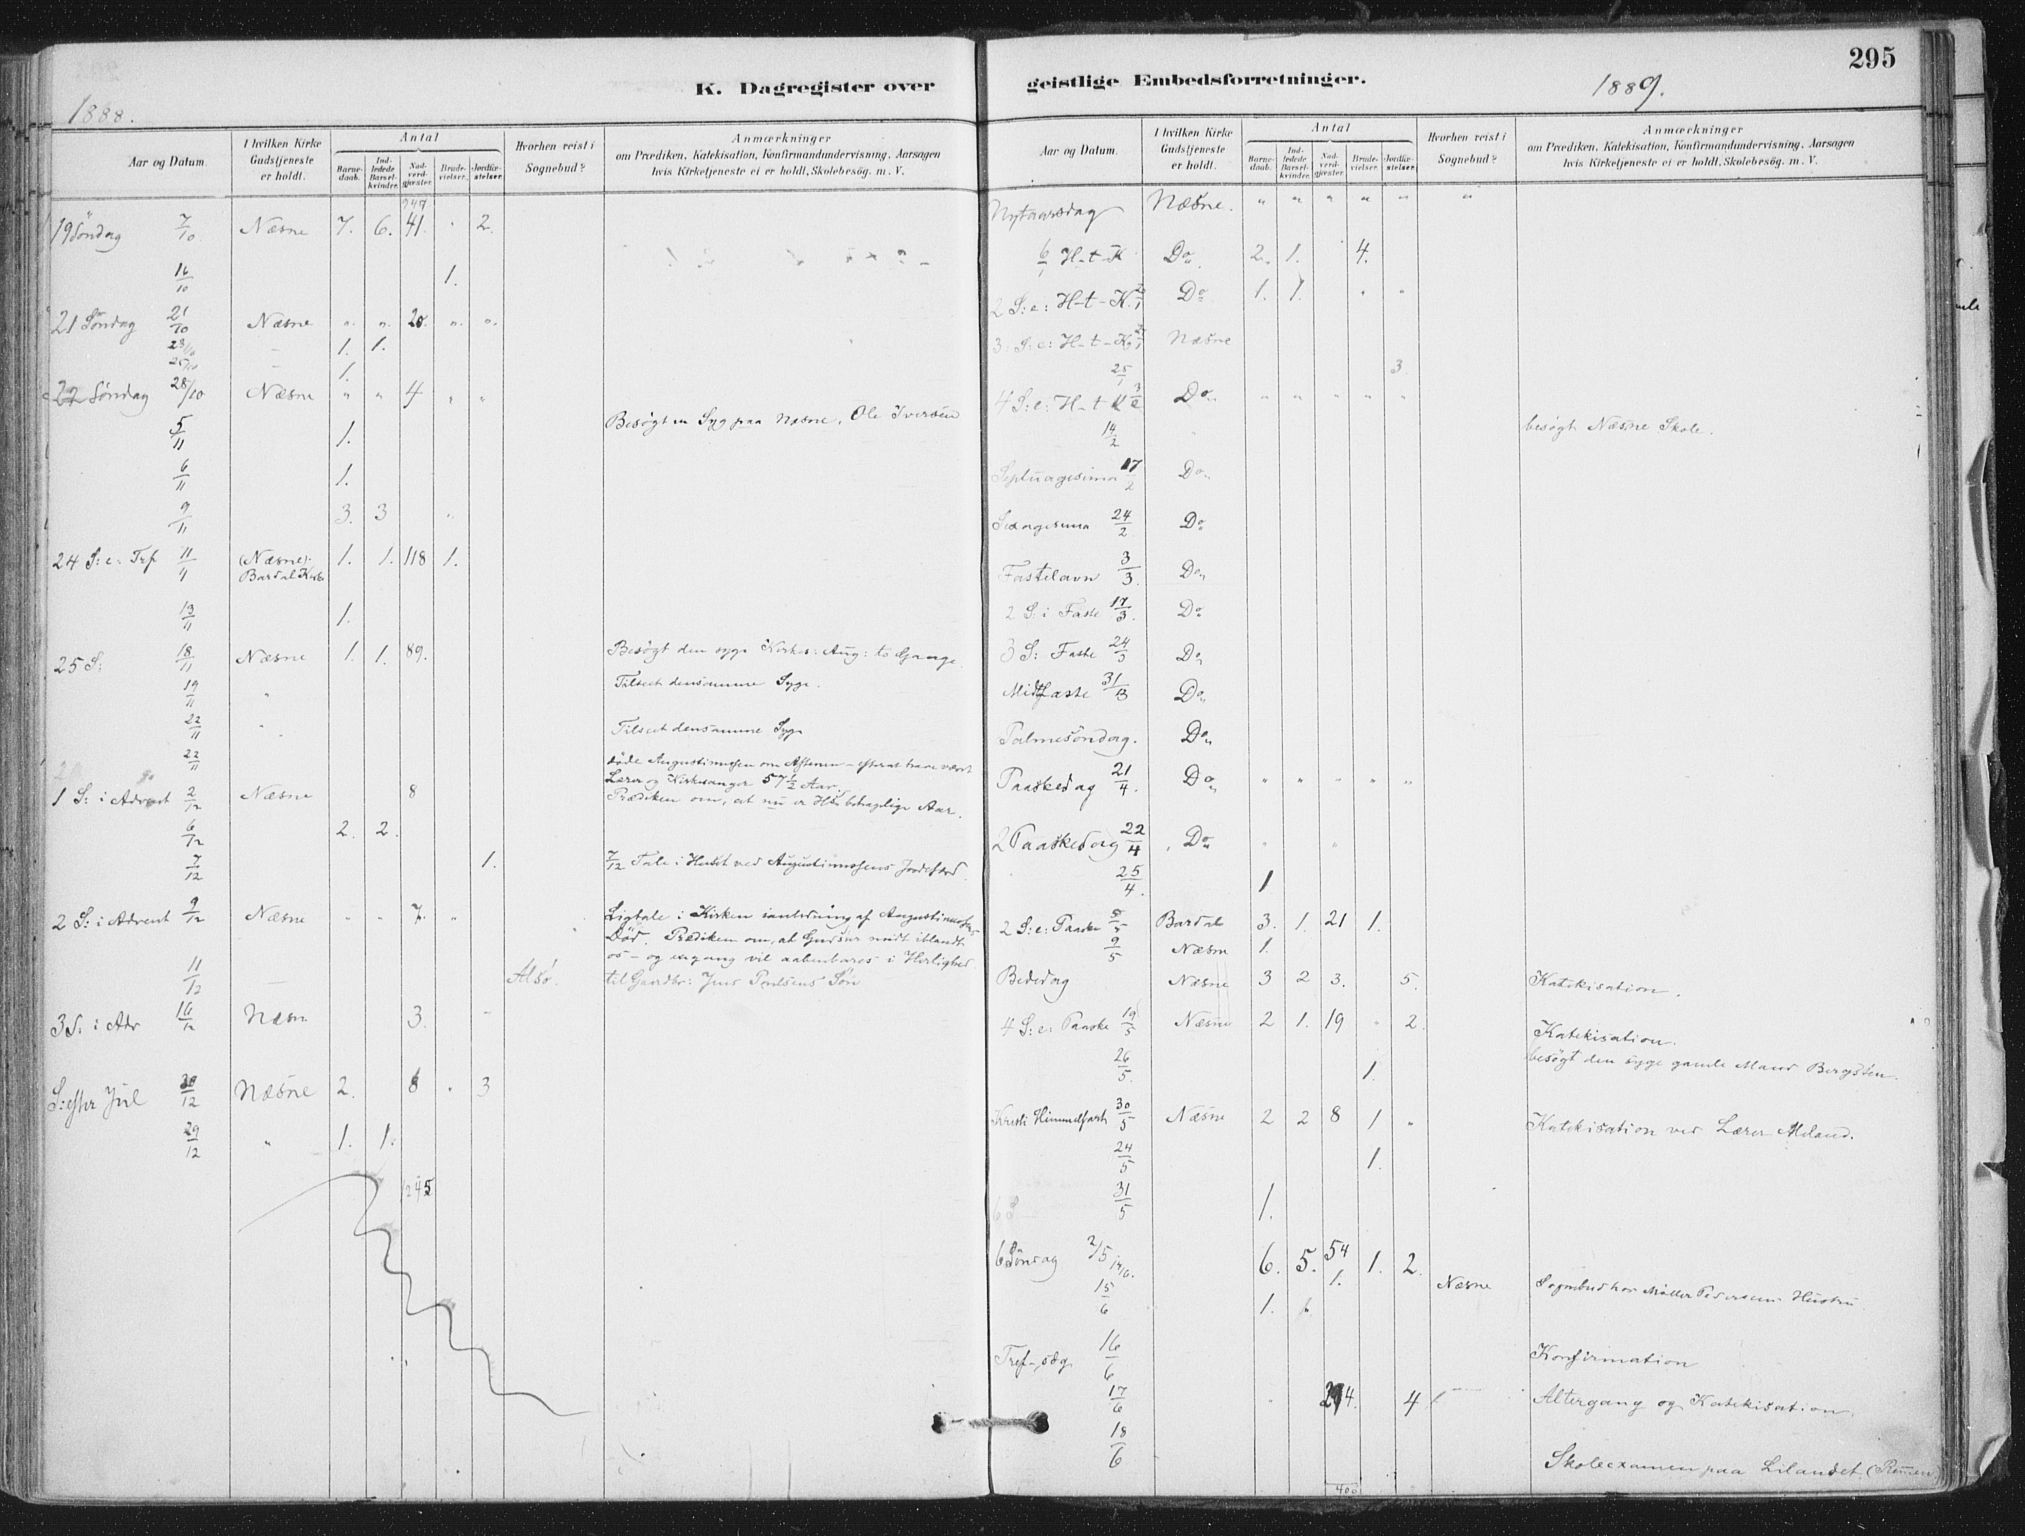 K. Dagregister over
1888.
Aar og Datum.
I hvilken Kirke Gudstjeneste er holdt.
Antal
Barne-daab.
Ind-ledede Barsel-kvinder.
Nad-verd-gjæster.
Brude-vielser.
Jordfæ-stelser.
Hvorhen reist i Sognebud?
Anmærkninger
om Prædiken, Katekisation, Konfirmandundervisning, Aarsagen
hvis Kirketjeneste ei er holdt, Skolebesøg. m. V.
947
19 Søndag 7/10 Næsne 7. 6. 41. " 2.
16/10 1.
21 Søndag 21/10 Næsne " " 20. " "
23/10 — 1. 1.
25/10 — 1.
22 Søndag 28/10 Næsne " " 4 " "
5/11 1. Besøgt en Syg paa Næsne, Ole Iversen
6/11 1.
9/11 3. 3 "
24 S: e: Tref 11/11 (Næsne) 1. 1. 118 1.
Bardal Kirke
13/11 1.
25 S: 18/11 Næsne 1. 1. 89. Besøgt den syge Kirkes: Aug: to Gange.
19/11 " Tilseet densamme Syge.
22/11 " Tilseet densamme Syge
22/11 døde Augustinussen om Aftenen - efterat have været
Lærer og Kirkesanger 57 1/2 Aar.
1 S: i Advent 2/12 Næsne 8 Prædiken om, at nu er Hs behagelige Aar.
6/12 2. 2.
7/12 1. 7/12 Tale i Huset ved Augustinussens Jordefærd.
2 S: i Advent 9/12 Næsne " " 7. " Ligtale i Kirken i anledning af Augustinussens
Død. Prædiken om, at Guds er midt iblandt
os - og engang vil aabenbares i Herlighed
11/12 — Alsø. til Gaardbr: Jens Poulsens Søn
3 S: i Adv 16/12 Næsn 3. "
S: efter Jul 30/12 Næsne 2. 8 " 3
29/12 " 1. 1.
1245
geistlige Embedsforretninger.
1889.
295
Aar og Datum.
I hvilken Kirke Gudstjeneste er holdt.
Antal
Barne-daab.
Ind-ledede Barsel-kvinder.
Nad-verd-gjæster.
Brude-vielser.
Jordfæ-stelser.
Hvorhen reist i Sognebud?
Anmærkninger
om Prædiken, Katekisation, Konfirmandundervisning, Aarsagen
hvis Kirketjeneste ei er holdt, Skolebesøg. m. V.
Nytaarsdag Næsne. " " " " " "
6/1 H-t-K Do 2. 1. 4.
2 S: e: H-t-K. Do 1. 1. " "
3 S: e: H-t-K Næsne
25/1 3.
4 S: e: H-t K 3/2 Do " " " " "
14/2 besøgt Næsne Skole.
Septuagesima 17/2 Do
Sexagesima 24/2 Do
Fastelavn 3/3. Do
2 S: i Faste 17/3. Do
3 S: Faste 24/3 Do
Midtfaste 31/3 Do
Palmesøndag. Do
Paaskedag 21/4. Do " " " " "
2 Paaskedag 22/4 Do " "
25/4. 1
2 S: e: Paaske 5/5 Bardal 3. 1. 21 1.
9/5 Næsne 1.
Bededag Næsne 3 2 3. 5. Katekisation.
4 S: e: Paaske 19/5 Næsne 2 1. 19 " 2. Katekisation.
26/5. 1. besøgt den syge gamle Mand Bergsten.
Kristi Himmelfart 30/5 Næsne 2 2 8 1 " Katekisation ved Lærer Meland.
24/5 1.
6 S 31/5 1.
6 Søndag 2/5 6. 5. 54 1. 2.
1. Næsne Sognebud hos Møller Pedersens Hustru.
15/6 1.
Tref-sdg 16/6 Konfirmation
17/6 " 274. 4 Altergang og Katekisation.
18/6 Skoleexamen paa Lilandet.
400